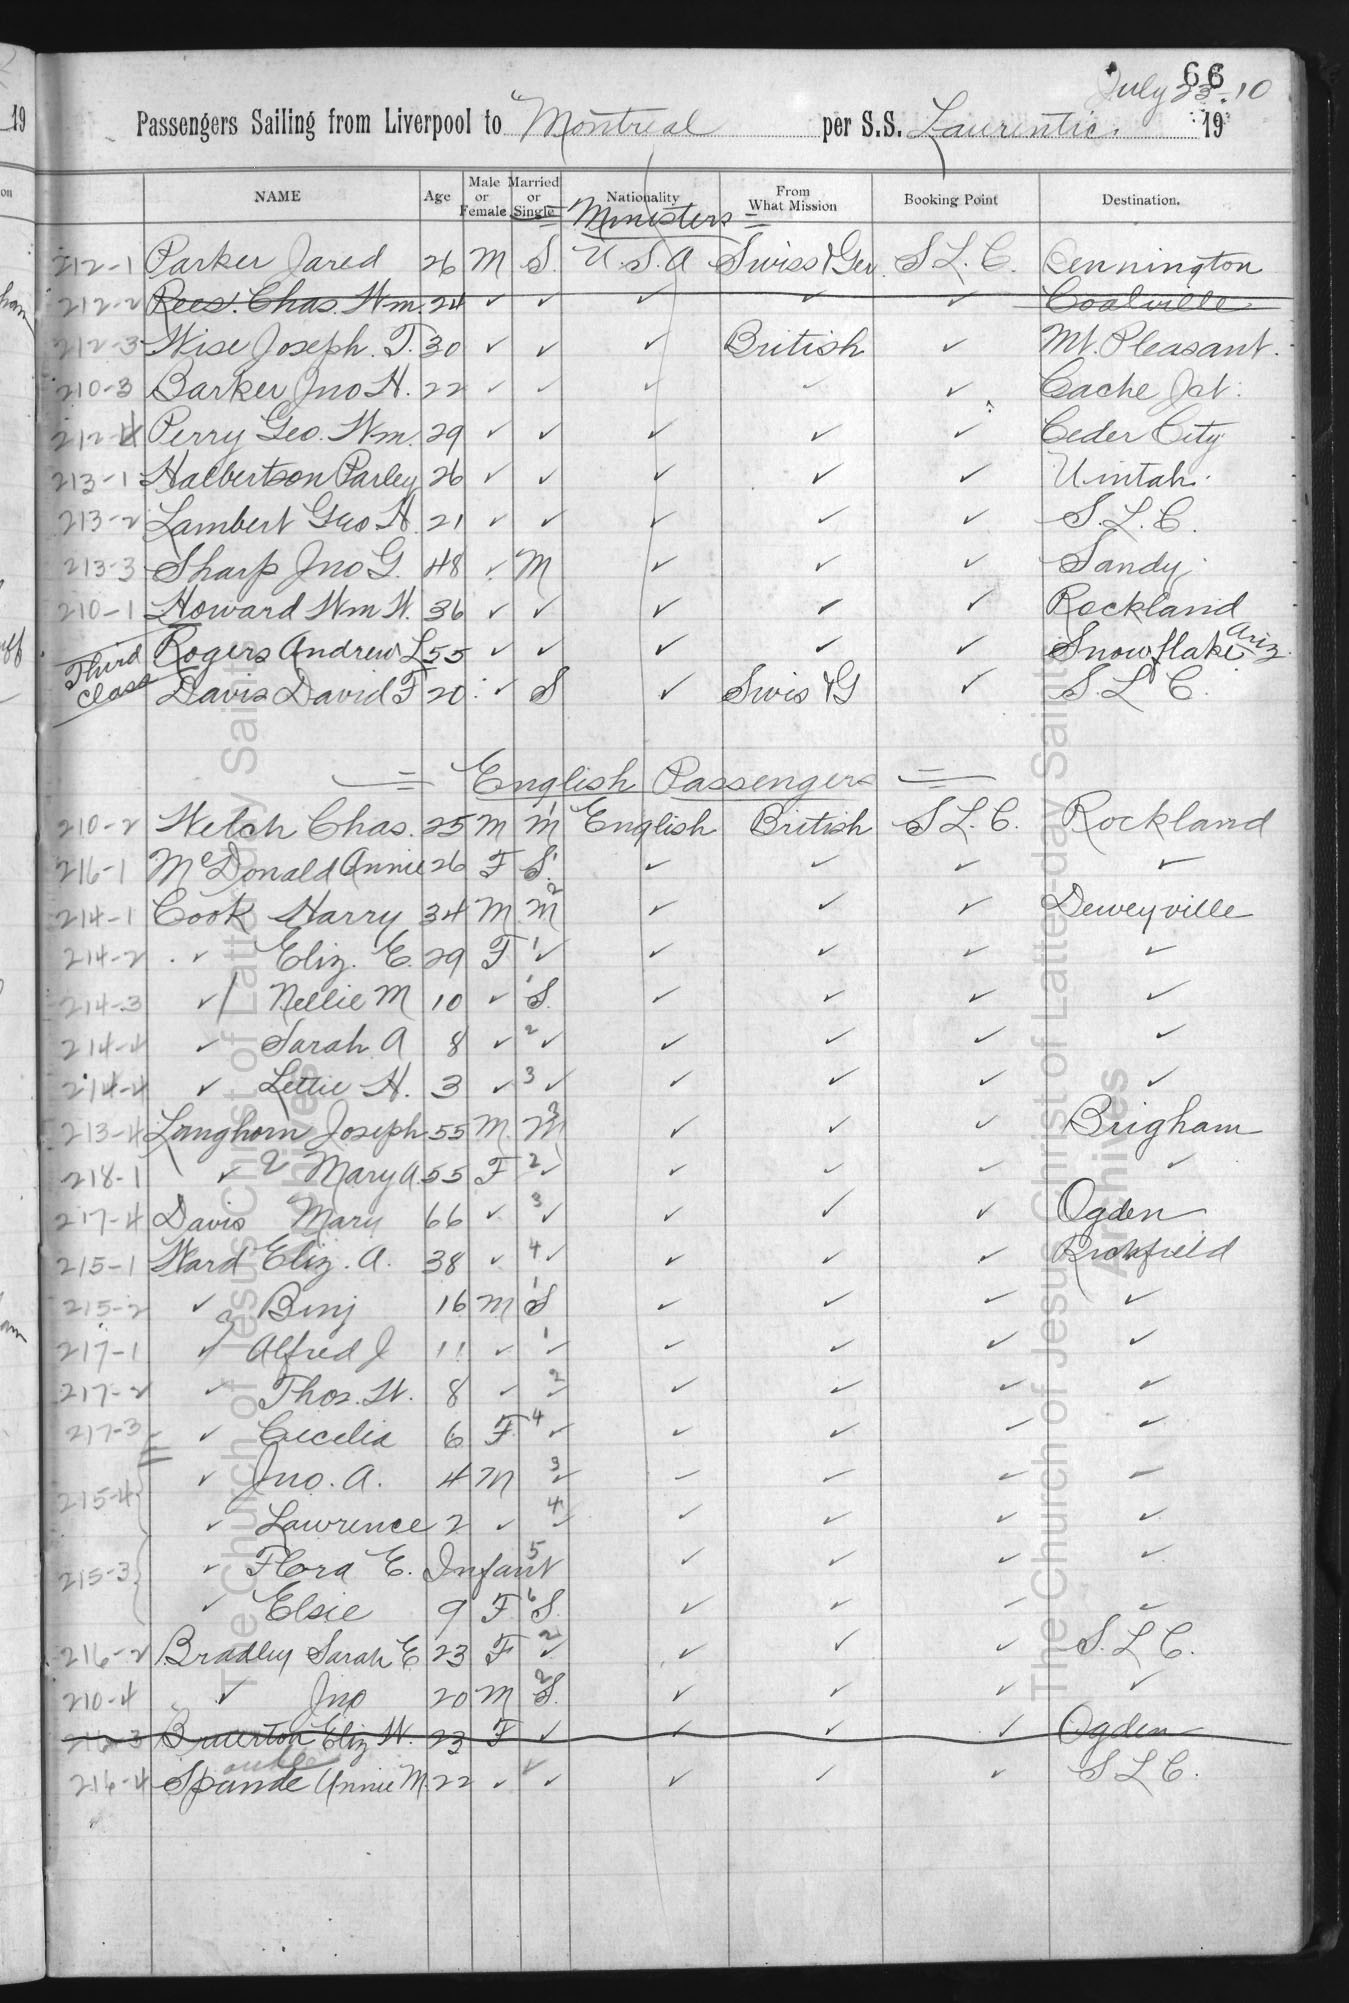 66
July 23-10
Passengers Sailing from Liverpool to Montreal per S.S. Laurentic. 19
NAME Age Male or Female Married or Single Nationality From What Mission Booking Point Destination.
Ministers
212-1 Parker Jared 26 M S. U.S.A Swiss & Ger. S.L.C.
212-2 Rees. Chas. Wm. 24 ✓ ✓ ✓ ✓ ✓ Coalville
212-3 Wise Joseph. T. 30 ✓ ✓ ✓ British ✓ Mt. Pleasant.
210-3 Barker Jno H. 22 ✓ ✓ ✓ ✓ ✓ Cache Jct.
212-4 Perry Geo. Wm. 29 ✓ ✓ ✓ ✓ ✓ Ceder City
213-1 Halbertson Parley 26 ✓ ✓ ✓ ✓ ✓ Uintah.
213-2 Lambert Geo H 21 ✓ ✓ ✓ ✓ ✓ S.L.C.
213-3 Sharp Jno G. 48 ✓ M ✓ ✓ ✓ Sandy
210-1 Howard Wm W. 36 ✓ ✓ ✓ ✓ ✓ Rockland
Third Class Rogers Andrew L 55 ✓ ✓ ✓ ✓ ✓ Snowflake Ariz.
Davis David F 20 ✓ S ✓ Swis & G ✓ S.L.C.
English Passengers
210-2 Welch Chas. 25 M M 1 English British S.L.C. Rockland
216-1 McDonald Annie 26 F S. 1 ✓ ✓ ✓ ✓
214-1 Cook Harry 34 M M 2 ✓ ✓ ✓ Deweyville
214-2 ✓ Eliz. E. 29 F 1 ✓ ✓ ✓ ✓ ✓
214-3 ✓ Nellie M 10 ✓ 1 S. ✓ ✓ ✓ ✓
214-4 ✓ Sarah A 8 ✓ 2 ✓ ✓ ✓ ✓ ✓
214-4 ✓ Lettie H. 3 ✓ 3 ✓ ✓ ✓ ✓ ✓
213-4 Langhorn Joseph 55 M. M 3 ✓ ✓ ✓ Brigham
218-1 ✓ 2 Mary A. 55 F 2 ✓ ✓ ✓ ✓ ✓
217-4 Davis Mary 66 ✓ 3 ✓ ✓ ✓ ✓ Ogden
215-1 Ward Eliz. A. 38 ✓ 4 ✓ ✓ ✓ ✓ Richfield
215-2 ✓ Benj 16 M 1 S ✓ ✓ ✓ ✓
217-1 ✓ 3 Alfred J 11 ✓ 1 ✓ ✓ ✓ ✓ ✓
217-2 ✓ Thos. W. 8 ✓ 2 ✓ ✓ ✓ ✓ ✓
217-3 ✓ Cecelia 6 F 4 ✓ ✓ ✓ ✓ ✓
215-4 ✓ Jno. A. 4 M 3 ✓ ✓ ✓ ✓ ✓
✓ Lawrence 2 ✓ 4 ✓ ✓ ✓ ✓ ✓
215-3 ✓ Flora E. Infant 5 ✓ ✓ ✓ ✓
✓ Elsie 9 F 6 S. ✓ ✓ ✓ ✓
216-2 Bradley Sarah E 23 F 2 ✓ ✓ ✓ ✓ S.L.C.
210-4 ✓ Jno 20 M 2 S. ✓ ✓ ✓ ✓
216-3 Eliz W. 23 F ✓ ✓ ✓ ✓ Ogden
216-4 Annie M. 22 ✓ ✓ ✓ ✓ ✓ S L C.
The Church of Jesus Christ of Latter-day Saints
Archives
The Church of Jesus Christ of Latter-day Saints
Archives